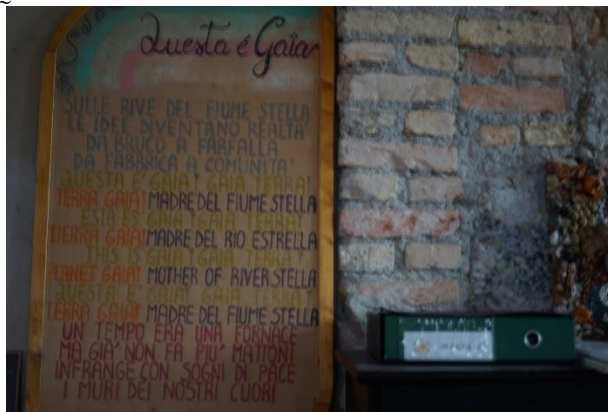 Questa é Gaia
SULLE RIVE DEL FIUME STELLA
LE IDEE DIVENTANO REALTA'
DA BRUCO A FARFALLA
DA FABBRICA A COMUNITA'
QUESTA E' GAIA! GAIA TERRA!
TERRA GAIA! MADRE DEL FIUME STELLA
ESTA ES GAIA! GAIA TIERRA!
TIERRA GAIA! MADRE DEL RIO ESTRELLA
THIS IS GAIA! GAIA TERRA!
PLANET GAIA! MOTHER OF RIVER STELLA
QUESTA E' GAIA! GAIA TERRA!
TERRA GAIA! MADRE DEL FIUME STELLA
UN TEMPO ERA UNA FORNACE
MA GIA' NON FA PIU' MATTONI
INFRANGE CON SOGNI DI PACE
I MURI DEI NOSTRI CUORI